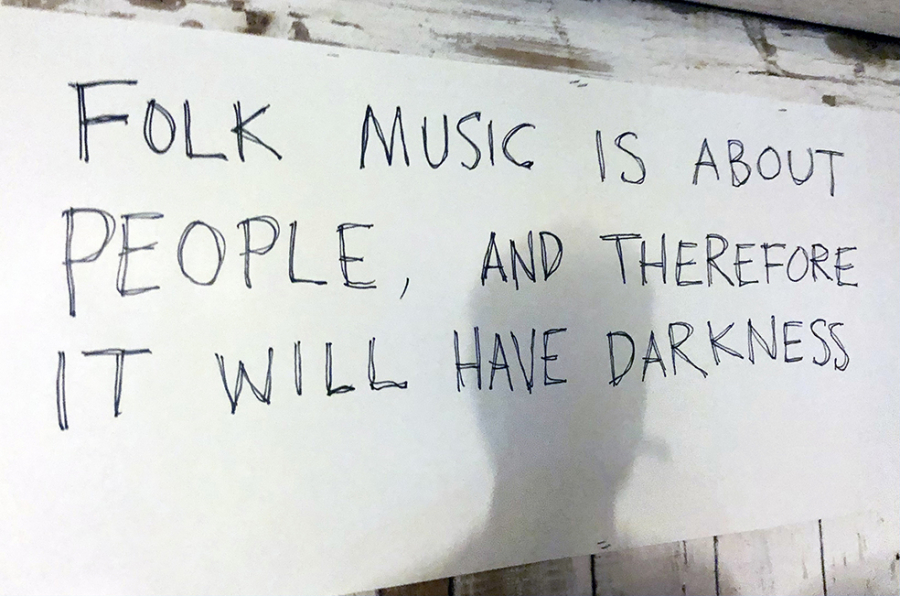 FOLK MUSIC IS ABOUT
PEOPLE, AND THEREFORE
IT WILL HAVE DARKNESS